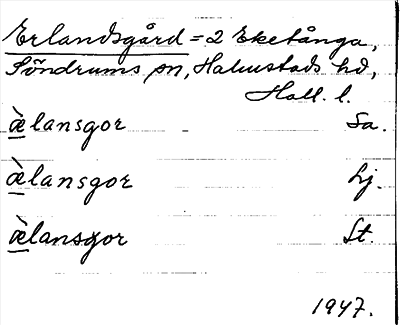 Erlandsgård = 2 Eketånga,
Söndrums sn, Halmstads hd,
Hall. l.
æ̀lansgor Sa.
æ̀lansgor Lj.
æ̀lansgor St.
1947.